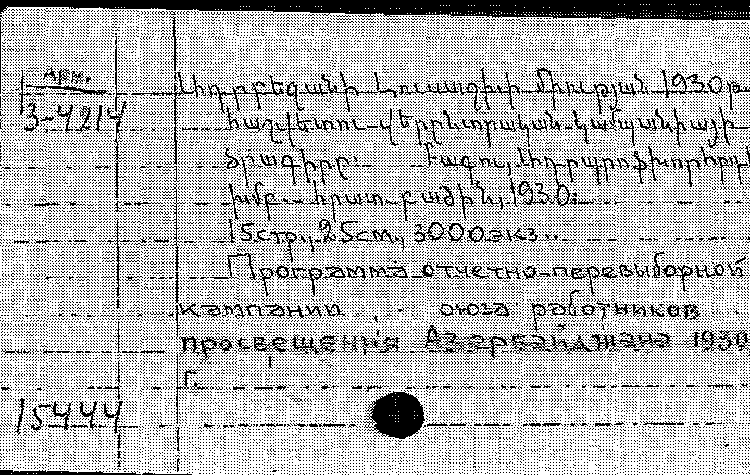 арм.
3-4214
Ադրբեջանի Լուսաշխ Միության 1930թ
հաշվետու-վերընտրական կամպանիայի
ծրագիրը. Բագու, Ադրպրոֆխորհրդի
խմբ. հրատ. բաժին, 1930։
15стр., 25см., 3000экз..
Программа отчетно-перевыборной
кампании союза работников
просвещения Азербайджана 1930
г.
15444